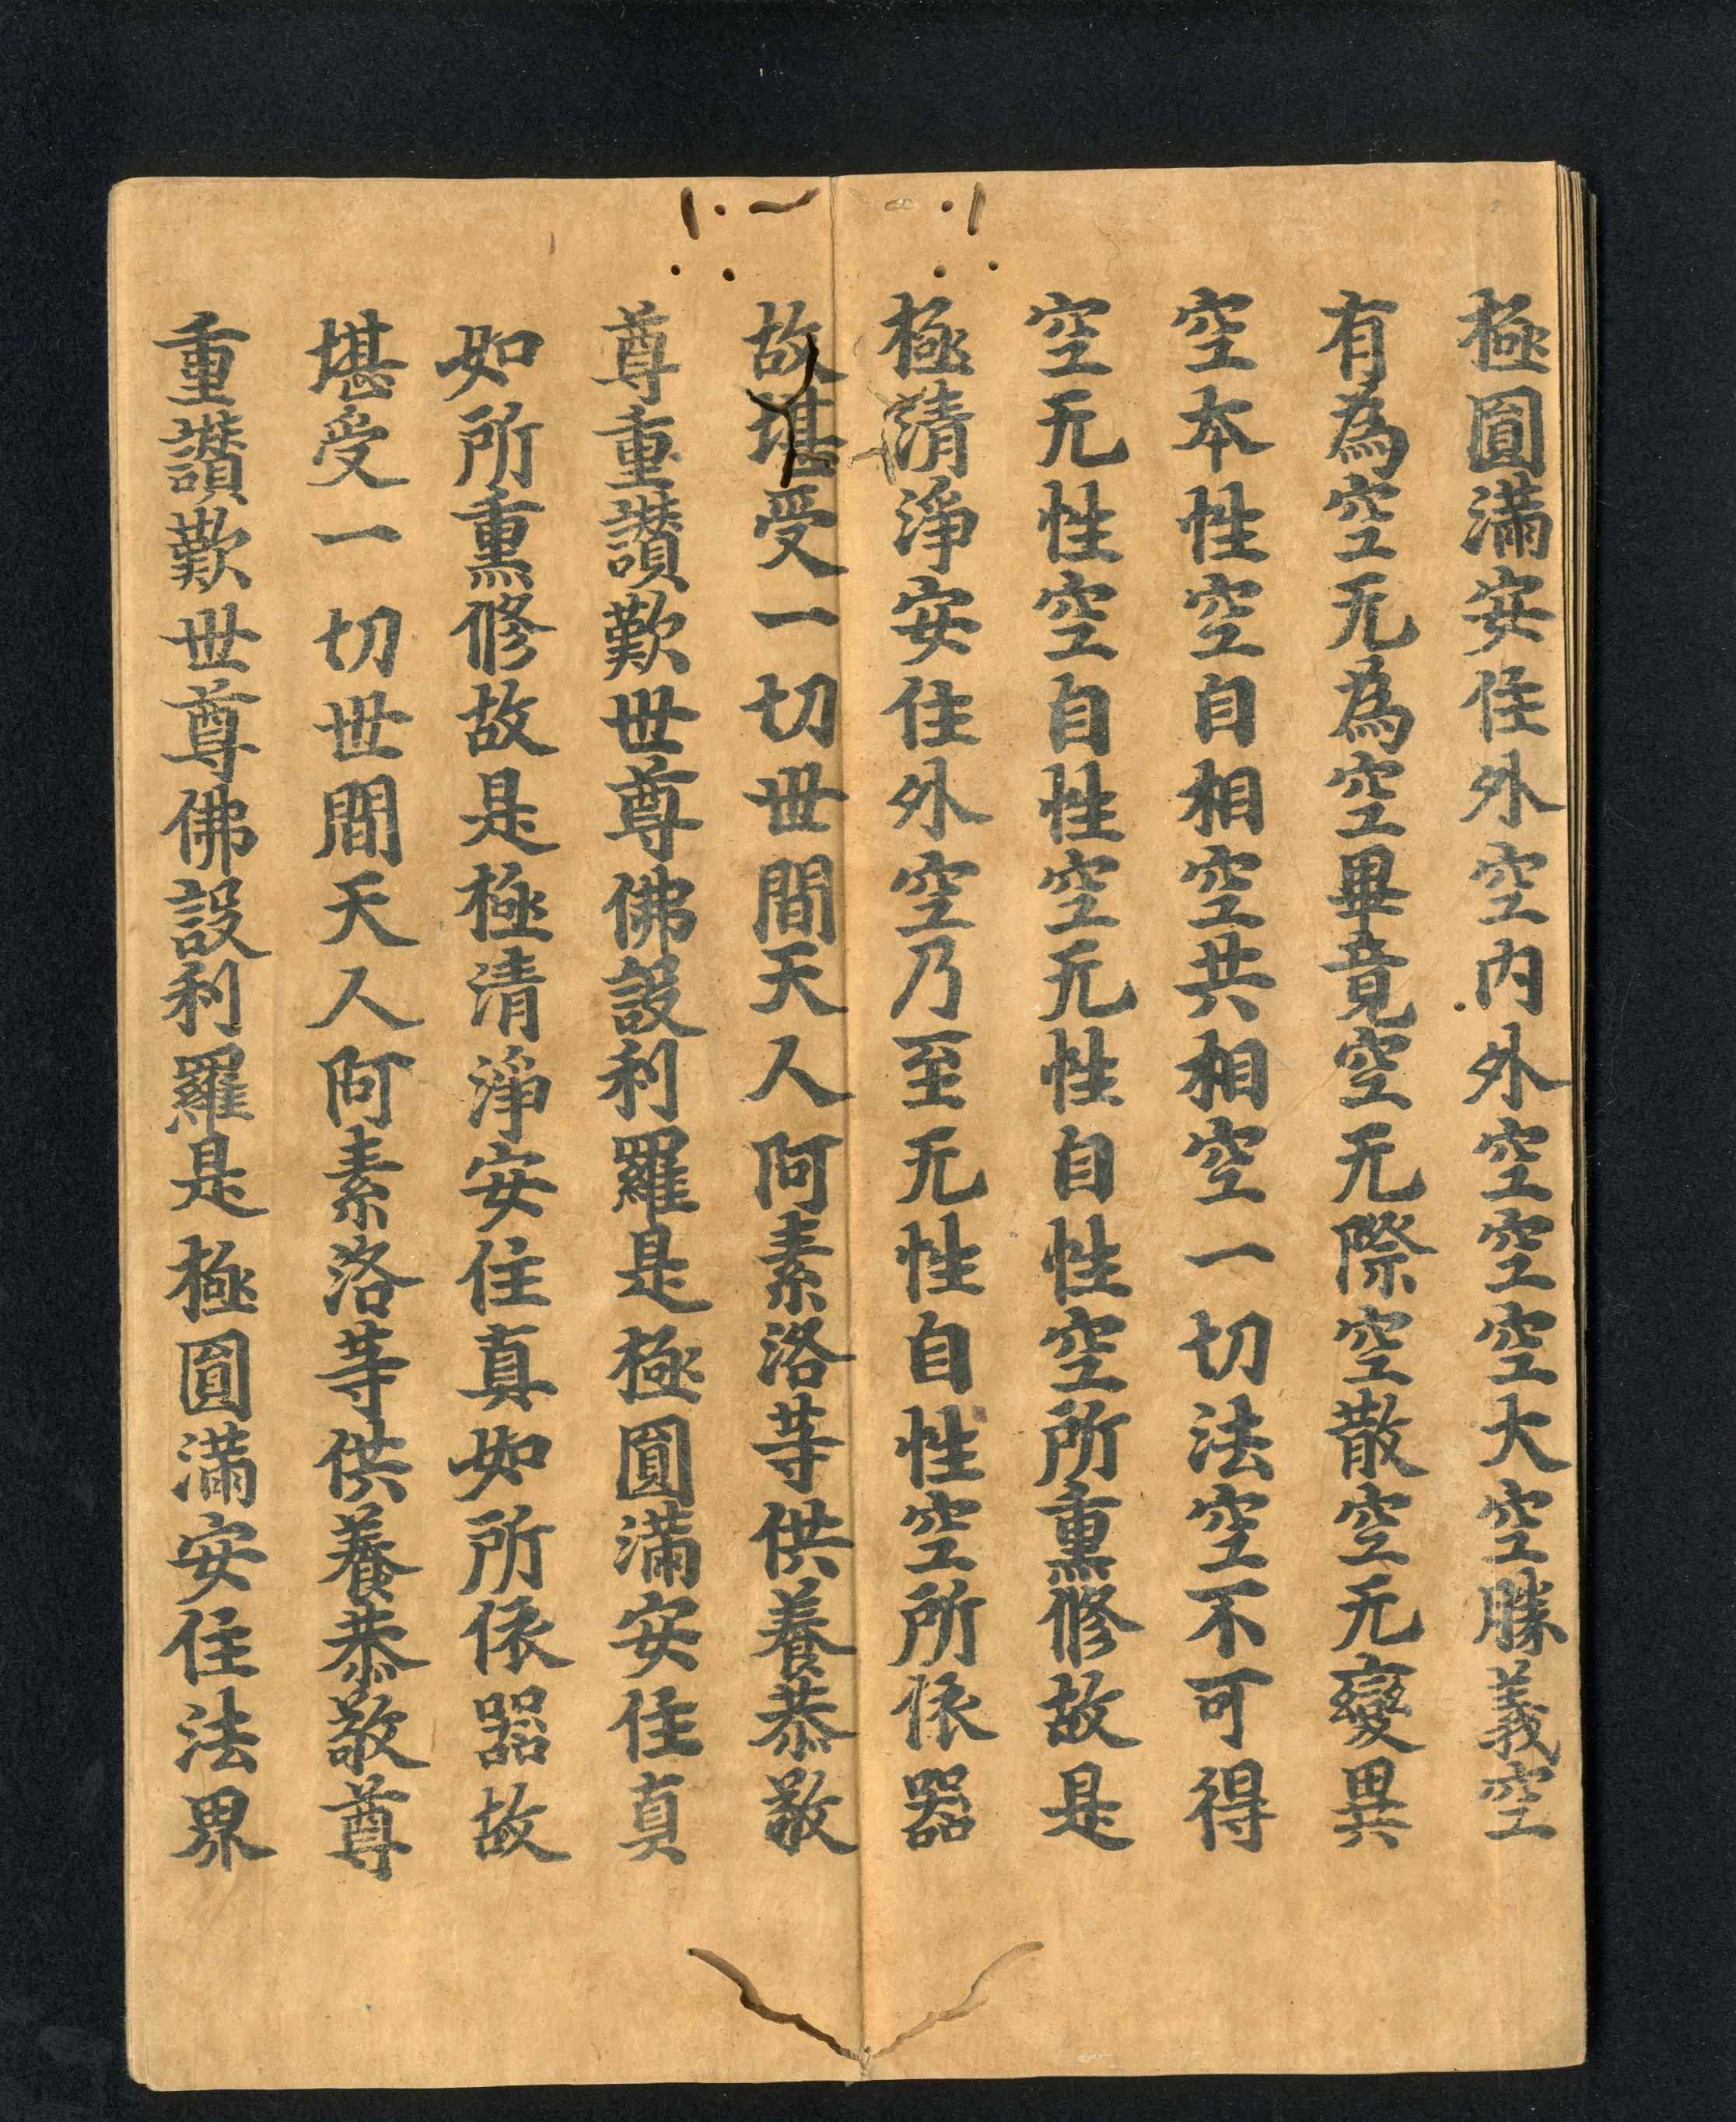 極圓滿安住外空內外空空空大空勝義空
有為空无為空畢竟空无際空散空无變異
空本性空自相空共相空一切法空不可得
空无性空自性空无性自性空所熏修故是
極清淨安住外空乃至无性自性空所依器
故堪受一切世間天人阿素洛等供養恭敬
尊重讚歎世尊佛設利羅是極圓滿安住真
如所熏修故是極清淨安住真如所依器故
堪受一切世間天人阿素洛等供養恭敬尊
重讚歎世尊佛設利羅是極圓滿安住法界